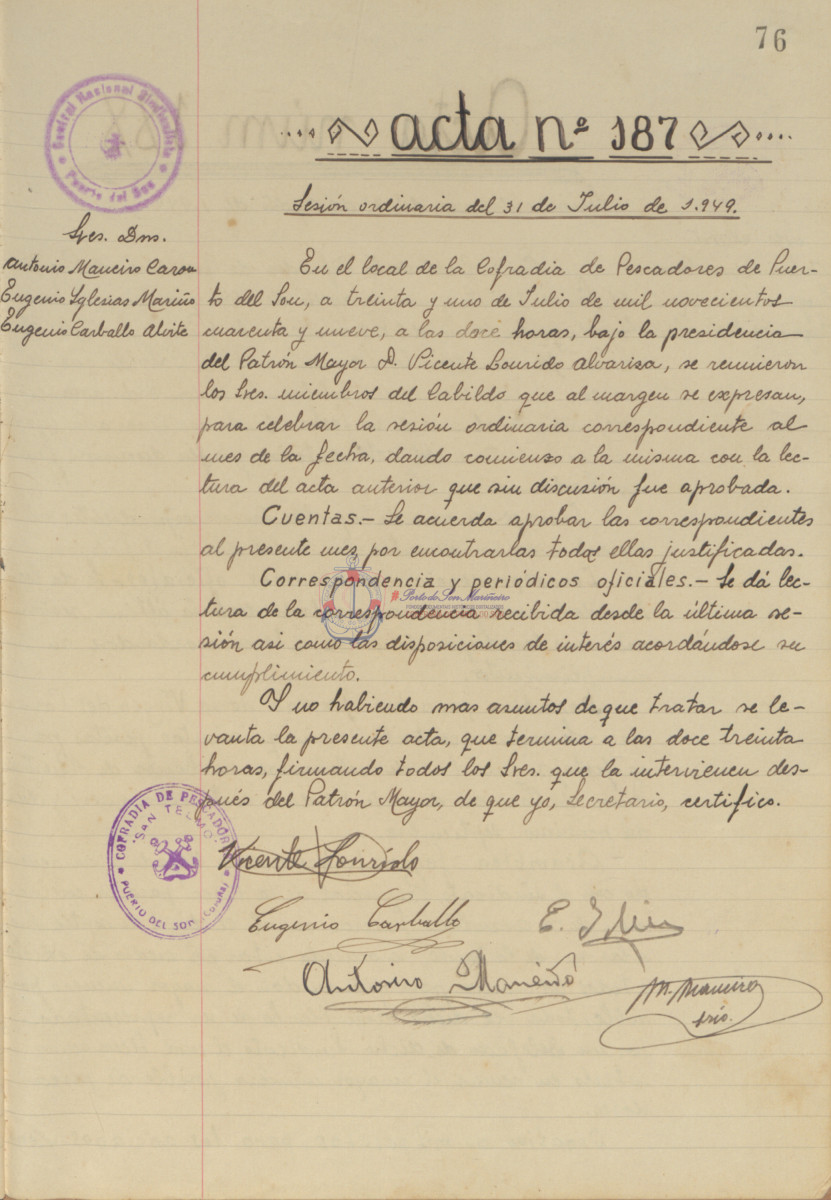 76
Central Nacional Sindicalista
Puerto del Son
acta nº 187
Sesión ordinaria del 31 de Julio de 1.949.
Sres. Dns.
Antonio Maneiro Carou
Eugenio Yglesias Mariño
Eugenio Carballo Alvite
En el local de la Cofradia de Pescadores de Puer-
to del Son, a treinta y uno de Julio de mil novecientos
cuarenta y nueve, a las doce horas, bajo la presidencia
del Patrón Mayor D. Vicente Lourido Alvariza, se reunieron
los Sres. miembros del Cabildo que al margen se expresan,
para celebrar la sesión ordinaria correspondiente al
mes de la fecha, dando comienzo a la misma con la lec-
tura del acta anterior que sin discusión fue aprobada.
Cuentas.- Se acuerda aprobar las correspondientes
al presente mes, por encontrarlas todas ellas justificadas.
Correspondencia y periódicos oficiales.- Se dá lec-
tura de la correspondencia recibida desde la última se-
sión asi como las disposiciones de interés acordándose su
cumplimiento.
Y no habiendo mas asuntos de que tratar se le-
vanta la presente acta, que termina a las doce treinta
horas, firmando todos los Sres. que la intervienen des-
pués del Patrón Mayor, de que yo, Secretario, certifico.
Porto do Son Mariñeiro
COFRADIA DE PESCADORES
"SAN TELMO"
PUERTO DEL SON (CORUÑA)
Vicente Lourido
Eugenio Carballo
Antonio Maneiro
M. Maneiro
Srio.